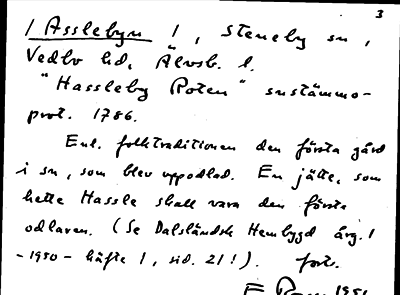 3
/ Asslebyn /, Steneby sn,
Vedbo hd, Älvsb. l.
"Hassleby Roten" snstämmo-
prot. 1786.
Enl. folktraditionen den första gård
i sn, som blev uppodlad. En jätte, som
hette Hassle skall vara den förste
odlaren. (Se Dalsländsk Hembygd årg. 1
-1950- häfte 1, sid. 21!). forts.
1951